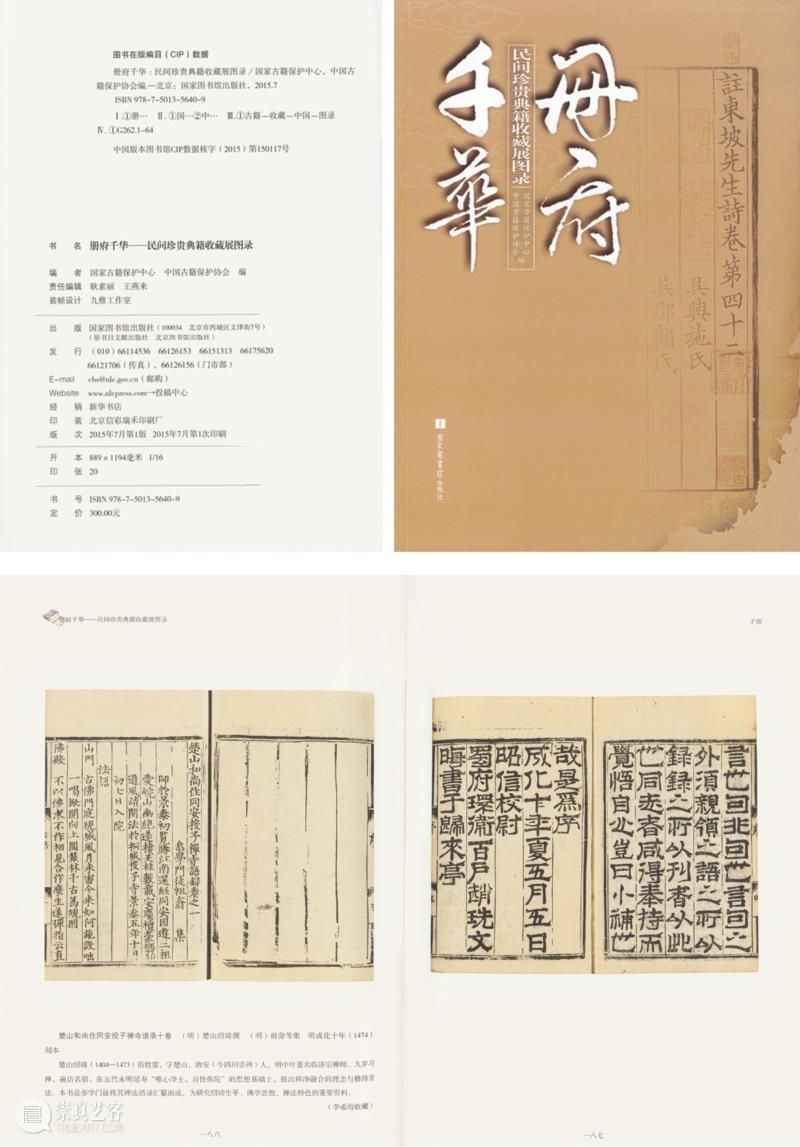 图书在版编目(CIP)数据
册府千华:民间珍贵典籍收藏展图录/国家古籍保护中心,中国古
籍保护协会编.—北京:国家图书馆出版社,2015.7
ISBN 978-7-5013-5640-9
Ⅰ.①册… Ⅱ.①国…②中… Ⅲ.①古籍-收藏-中国-图录
Ⅳ.①G262.1-64
中国版本图书馆CIP数据核字(2015)第150117号
书 名 册府千华——民间珍贵典籍收藏展图录
编 者 国家古籍保护中心 中国古籍保护协会 编
责任编辑 耿素丽 王燕来
装帧设计 九雅工作室
出 版 国家图书馆出版社(100034 北京市西城区文津街7号)
(原书目文献出版社 北京图书馆出版社)
发 行 (010)66114536 66126153 66151313 66175620
66121706(传真),66126156(门市部)
E-mail cbs@nlc.gov.cn(邮购)
Website www.nlcpress.com→投稿中心
经 销 新华书店
印 装 北京信彩瑞禾印刷厂
版 次 2015年7月第1版 2015年7月第1次印刷
开 本 889×1194毫米 1/16
印 张 20
书 号 ISBN 978-7-5013-5640-9
定 价 300.00元
册府
千華
民间珍贵典籍收藏展图录
国家古籍保护中心
中国古籍保护协会 编
註東坡先生詩卷第四十二
吳興施氏
吳郡顧氏
国家图书馆出版社
册府千华——民间珍贵典籍收藏展图录
楚山和尚住同安投子禪寺語錄卷之一
參學門徒祖裔 集
師於景泰初習勝江南還經同安因遵二祖
道風請開法於桐城投子寺景泰五年十月
初七日入院
法語
山門 古佛門庭現城風月來審今來如何施設咄
一喝掀開向上關叢林千古爲規則
佛殿 不以佛求不作相見合作麼生遂彈指云直
楚山和尚住同安投子禅寺语录十卷 (明)楚山绍琦撰 (明)祖裔等集 明成化十年(1474)
刻本
楚山绍琦(1404—1473)俗姓雷,字楚山,唐安(今四川崇州)人,明中叶著名临济宗禅师。九岁习
禅,遍访名宿,在五代永明延寿“唯心净土,自性弥陀”的思想基础上,提出禅净融合的理念与修持方
法。本书是参学门徒将其禅法语录汇纂而成,为研究绍琦生平、佛学思想、禅法特色的重要资料。
(李希海收藏)
一八六
子部
外須親領之語之所以
錄錄之所以刊者以此
世同志者咸得奉持而
覺悟自必豈曰小補世
哉是爲序
成化十年夏五月五日
昭信校尉
蜀府環衛百户趙珖文
晦書于歸來亭
一八七
崇真艺客